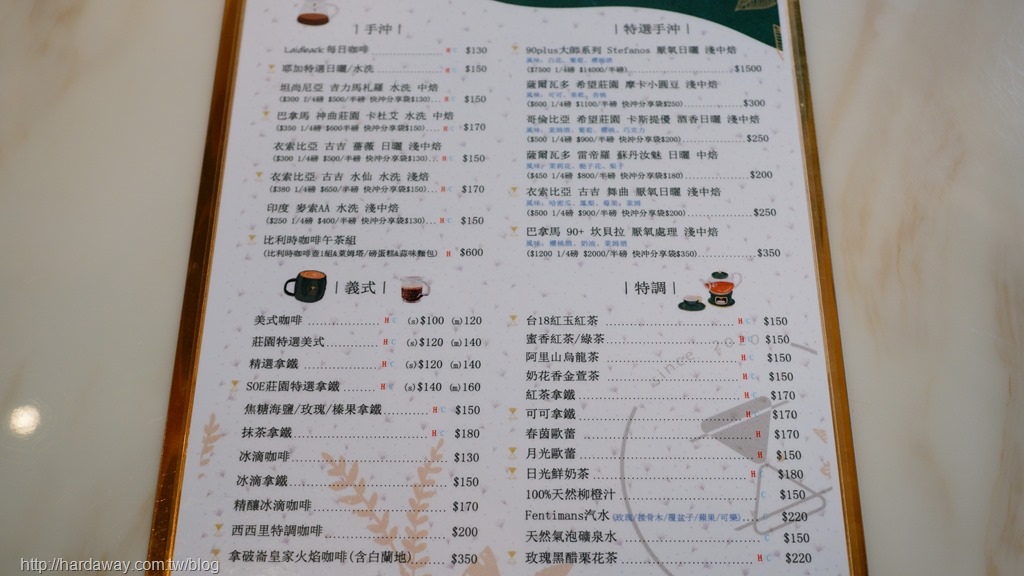 手沖
Laidback 每日咖啡 H C $130
耶加特選日曬/水洗 H C $150
坦尚尼亞 吉力馬札羅 水洗 中焙
($260 1/4磅 $500/半磅 快沖分享袋$130) H C $150
巴拿馬 神曲莊園 卡杜艾 水洗 中焙
($350 1/4磅 $600半磅 快沖分享袋$150) H C $170
衣索比亞 古吉 薔薇 日曬 中焙
($300 1/4磅 $500/半磅 快沖分享袋$130) H C $150
衣索比亞 古吉 水仙 水洗 淺焙
($380 1/4磅 $650/半磅 快沖分享袋$150) H C $170
印度 麥索AA 水洗 淺中焙
($250 1/4磅 $400/半磅 快沖分享袋$130) H C $150
比利時咖啡午茶組
(比利時咖啡壺1組&萊姆塔/磅蛋糕&蒜味麵包) H $600
義式
美式咖啡 H C (s)$100 (m)120
莊園特選美式 H C (s)$120 (m)140
精選拿鐵 H C (s)$120 (m)140
SOE莊園特選拿鐵 H C (s)$140 (m)160
焦糖海鹽/玫瑰/榛果拿鐵 H C $150
抹茶拿鐵 H C $180
冰滴咖啡 $130
冰滴拿鐵 $150
精釀冰滴咖啡 $170
西西里特調咖啡 $200
拿破崙皇家火焰咖啡(含白蘭地) $350
特選手沖
90plus大師系列 Stefanos 厭氧日曬 淺中焙
風味: 白花、葡萄、櫻桃酒
($7500 1/4磅 $14000/半磅) $1500
薩爾瓦多 希望莊園 摩卡小圓豆 淺中焙
($600 1/4磅 $1100/半磅 快沖分享袋$250) $300
哥倫比亞 希望莊園 卡斯提優 酒香日曬 淺中焙
風味: 萊姆酒、葡萄、櫻桃、巧克力
($500 1/4磅 $900/半磅 快沖分享袋$200) $250
薩爾瓦多 雷帝羅 蘇丹汝魅 日曬 中焙
($450 1/4磅 $800/半磅 快沖分享袋$180) $200
衣索比亞 古吉 舞曲 厭氧日曬 淺中焙
風味: 哈密瓜、鳳梨、莓果、萊姆
($500 1/4磅 $900/半磅 快沖分享袋$200) $250
巴拿馬 90+ 坎貝拉 厭氧處理 淺中焙
風味: 櫻桃酒、奶油、萊姆
($1200 1/4磅 $2000/半磅 快沖分享袋$350) $350
特調
台18紅玉紅茶 H C $150
蜜香紅茶/綠茶 H C $150
阿里山烏龍茶 H C $150
奶花香金萱茶 H C $150
紅茶拿鐵 H $170
可可拿鐵 H $170
春茵歐蕾 H $170
月光歐蕾 H $150
日光鮮奶茶 H $180
100%天然柳橙汁 C $150
Fentimans汽水(玫瑰/接骨木/覆盆子/蘋果/可樂) $220
天然氣泡礦泉水 C $150
玫瑰黑醋栗花茶 H C $220
since
http://hardaway.com.tw/blog